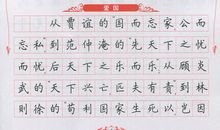 爱国
从贾谊的国而忘家公而
忘私到范仲淹的先天下之忧
而忧后天下之乐而乐从顾炎
武的天下兴亡匹夫有责到林
则徐的苟利国家生死以岂因